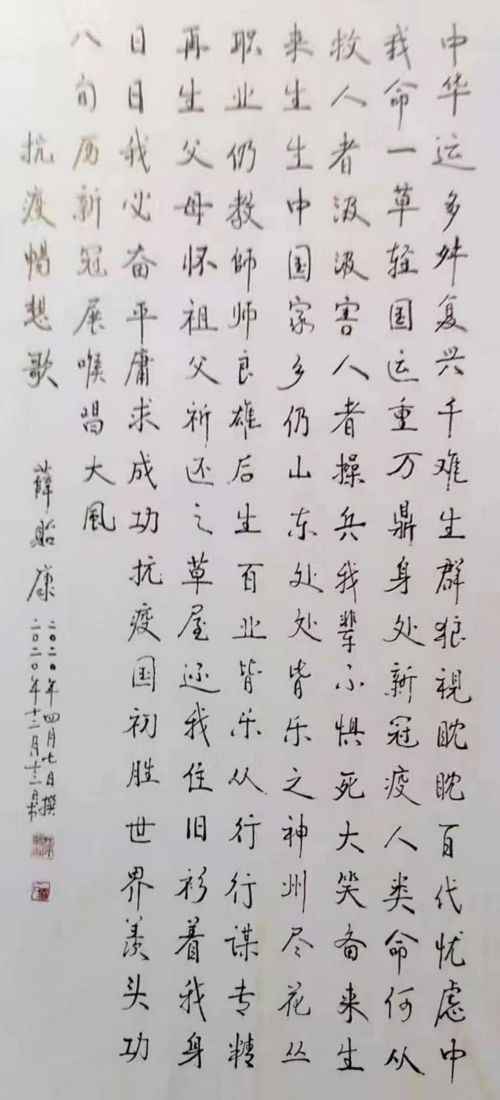 中华运多舛复兴千难生群狼视眈眈百代忧虑中
我命一草轻国运重万鼎身处新冠疫人类命何从
救人者汲汲害人者操兵我辈不惧死大笑备来生
来生生中国家乡仍山东处处皆乐之神州尽花丛
职业仍教師师良雄后生百业皆乐从行行谋专精
再生父母怀祖父祈还之草屋还我住旧衫着我身
日日我必奋平庸求成功抗疫国初胜世界羡头功
八旬历新冠展喉唱大風
抗疫暢想歌 薛贻康
二〇二〇年四月七日撰
二〇二〇年十二月十三日